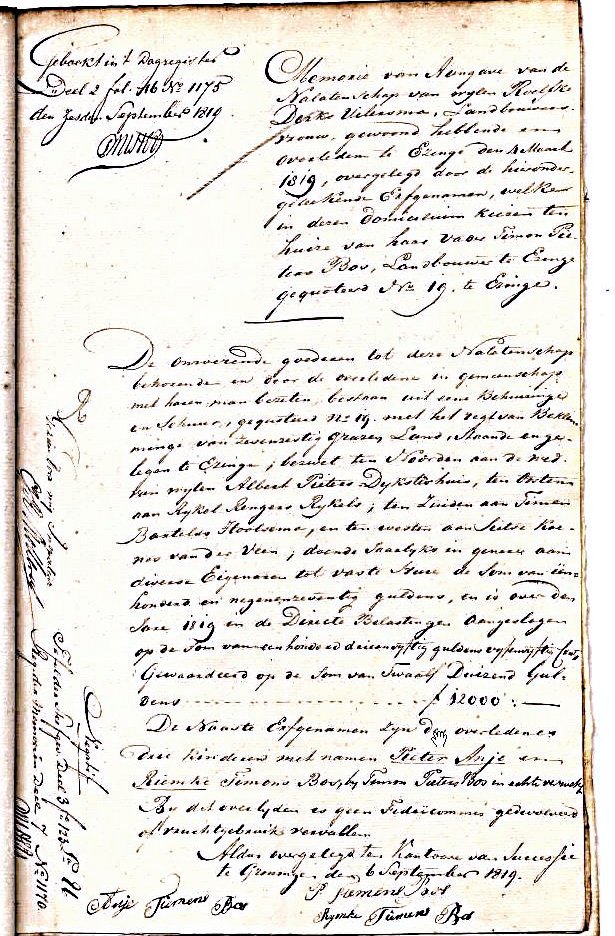 Geboekt in 't Dagregister
Deel 2 fol. 116 No 1175
den Zesden September 1819
Memorie van Aangave van de
Nalatenschap van wylen Roelfke
Derks Landbouwers
vrouw, gewoond hebbende en
overleden te Ezinge den 4 Maart
1819, overgelegd door de hieronder
getekende Erfgenamen, welke
in dezen domicilium kiezen ten
huize van haar vader Timon Pie-
ters Bos, Landbouwer te Ezinge
gequoteerd No 19. te Ezinge.
De onroerende goederen tot deze Nalatenschap
behorende en door de overledene in gemeenschap
met haren man bezeten, bestaan uit eene Behuizinge
en Schuur, gequoteerd No 19. met het regt van Beklem-
minge van zevenzestig grazen Land, staande en ge-
legen te Ezinge; bezwet ten Noorden aan de
van wylen Albert Pieters Dyksterhuis, ten Oosten
aan Rykel Rengers Rykels; ten Zuiden aan Timen
Bartelds Hoeksema, en ten westen aan Koe-
nes van der Veen; doende Jaarlyks in geheel aan
diverse Eigenaren tot vaste Huur de Som van een-
honderd en negenenzeventig guldens, en is over den
Jare 1819 in de Directe Belastingen aangeslagen
op de Som van eenhonderd drieenvyftig guldens vyfenvyftig Cent,
Gewaardeerd op de Som van Twaalf Duizend Gul-
dens - - - - - - - - - - - - - - - - f 12000:—
De Naaste Erfgenamen zyn de overledenes
drie kinderen met namen Pieter Anje en
Riemke Timons Bos, by Timon Pieters Bos in echte verwekt.
By dit overlyden is geen Fideicommis gedevolveerd
of vruchtgebruik vervallen
Aldus overgelegd ten Kantoore van Successie
te Groningen den 6 September 1819.
P Tiemens Bos
Anje Tiemens Bos
Rymke Tiemens Bos
Negatif
Deel 3
Reg. der Memorien Deel 7 No 1170